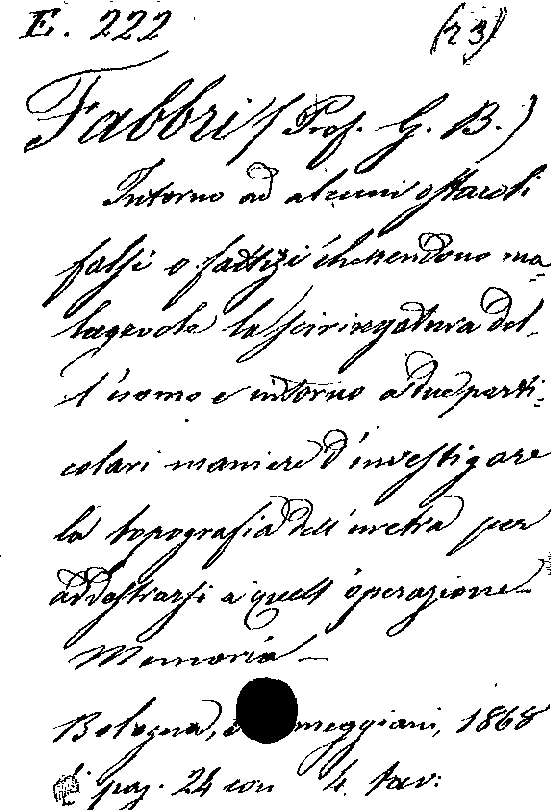 E. 222 (23)
Fabbri (Prof. G. B.)
Intorno ad alcuni ostacoli
falsi o fattizi che rendono ma-
lagevole la sciringatura del-
l'uomo e intorno a due parti-
colari maniere d'investigare
la topografia dell'uretra per
addestrarsi a quell'operazione
Memoria —
Bologna, meggiani, 1868
pag. 24 con 4 tav: